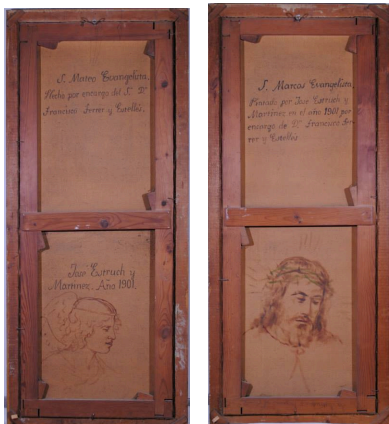 S. Mateo Evangelista,
Hecho por encargo del S. Dn
Francisco Ferrer y Estellés.
José Curruch y
Martinez. Año 1901.
S. Marcos Evangelista,
Pintado por José Curruch y
Martinez en el año 1901 por
encargo de Dn Francisco Fe-
rrer y Estellés